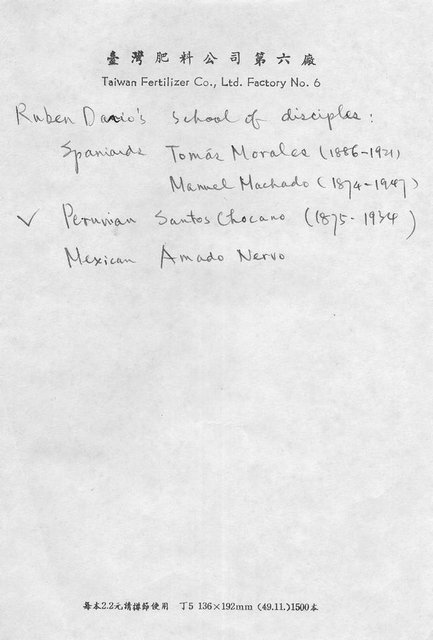 臺灣肥料公司第六廠
Taiwan Fertilizer Co., Ltd. Factory No. 6
Ruben Dario's school of disciples:
Spaniards Tomás Morales (1886-1921)
Manuel Machado (1874-1947)
✓ Peruvian Santos Chocano (1875-1934)
Mexican Amado Nervo
每本2.2元請撙節使用 丁5 136×192mm (49.11.)1500本